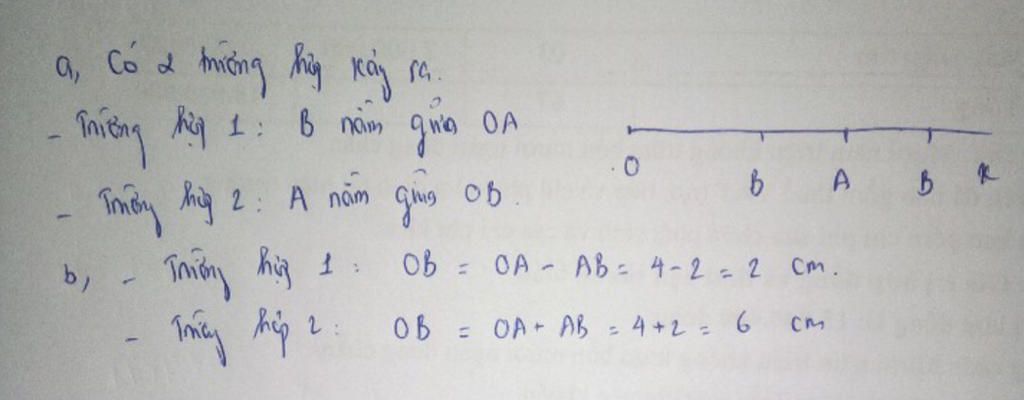 a, Có 2 trường hợp xảy ra.
- Trường hợp 1: B nằm giữa OA
O B A B x
- Trường hợp 2: A nằm giữa OB.
b, - Trường hợp 1: OB = OA - AB = 4 - 2 = 2 cm.
- Trường hợp 2: OB = OA + AB = 4 + 2 = 6 cm